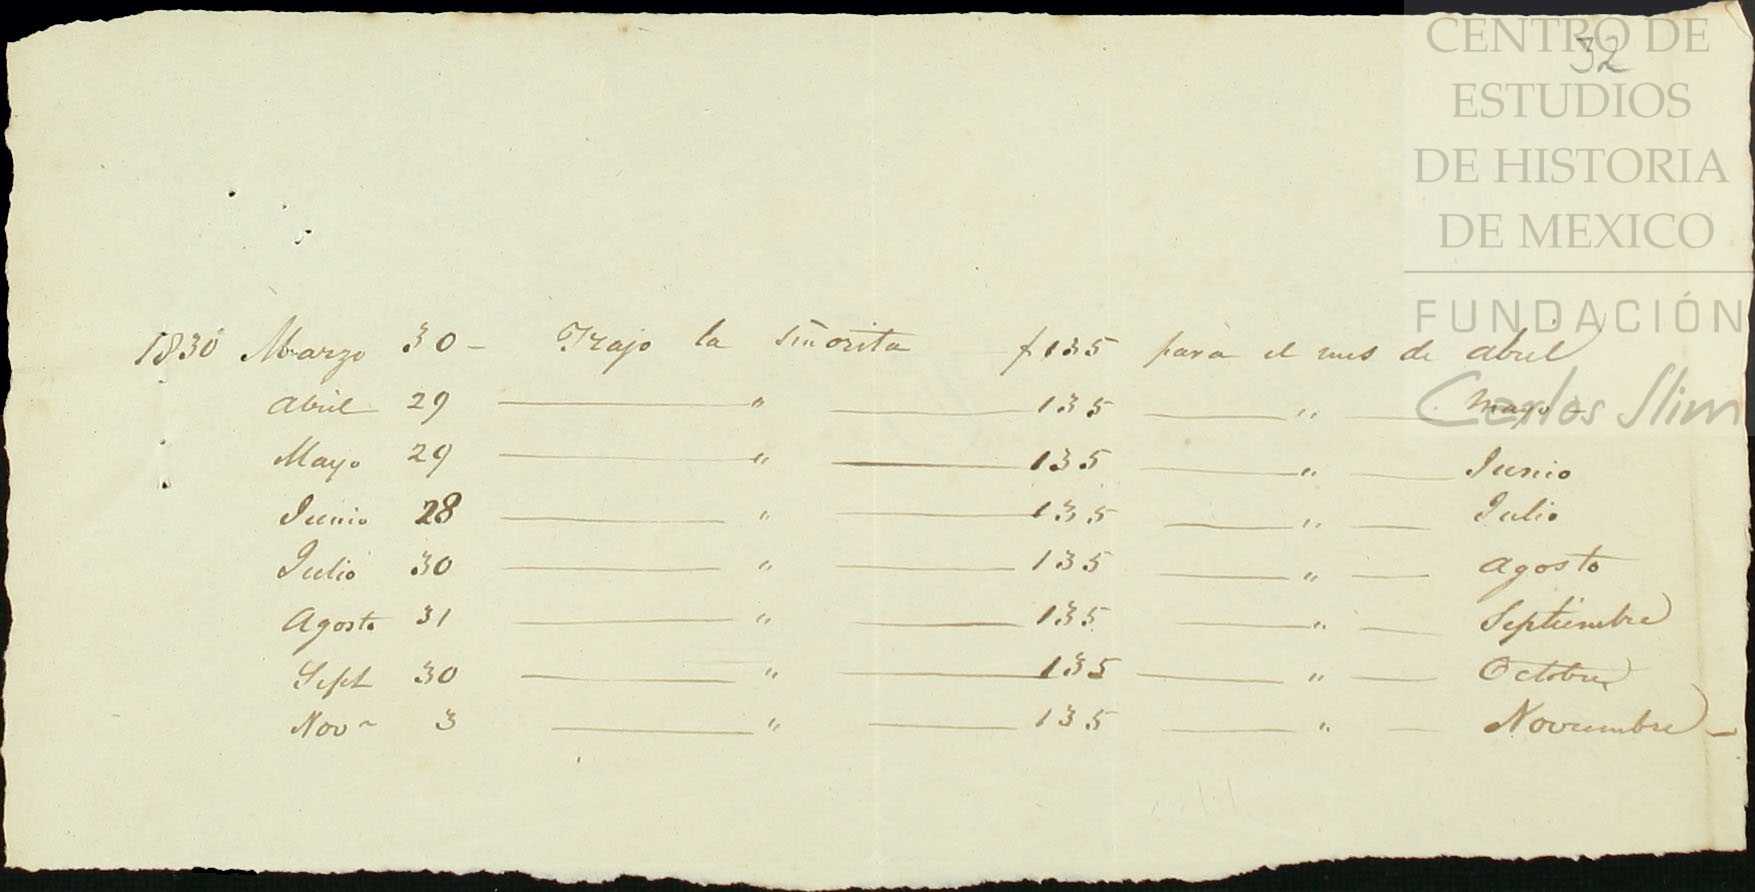 CENTRO DE
32
ESTUDIOS
DE HISTORIA
DE MEXICO
FUNDACIÓN
Carlos Slim
1830 Marzo 30 - Trajo la Siñorita $135 para el mes de abril
Abril 29 — " — 135 — " — Mayo -
Mayo 29 — " — 135 — " — Junio
Junio 28 — " — 135 — " — Julio
Julio 30 — " — 135 — " — Agosto
Agosto 31 — " — 135 — " — Septiembre
Sept 30 — " — 135 — " — Octobre
Nov~ 3 — " — 135 — " — Noviembre -